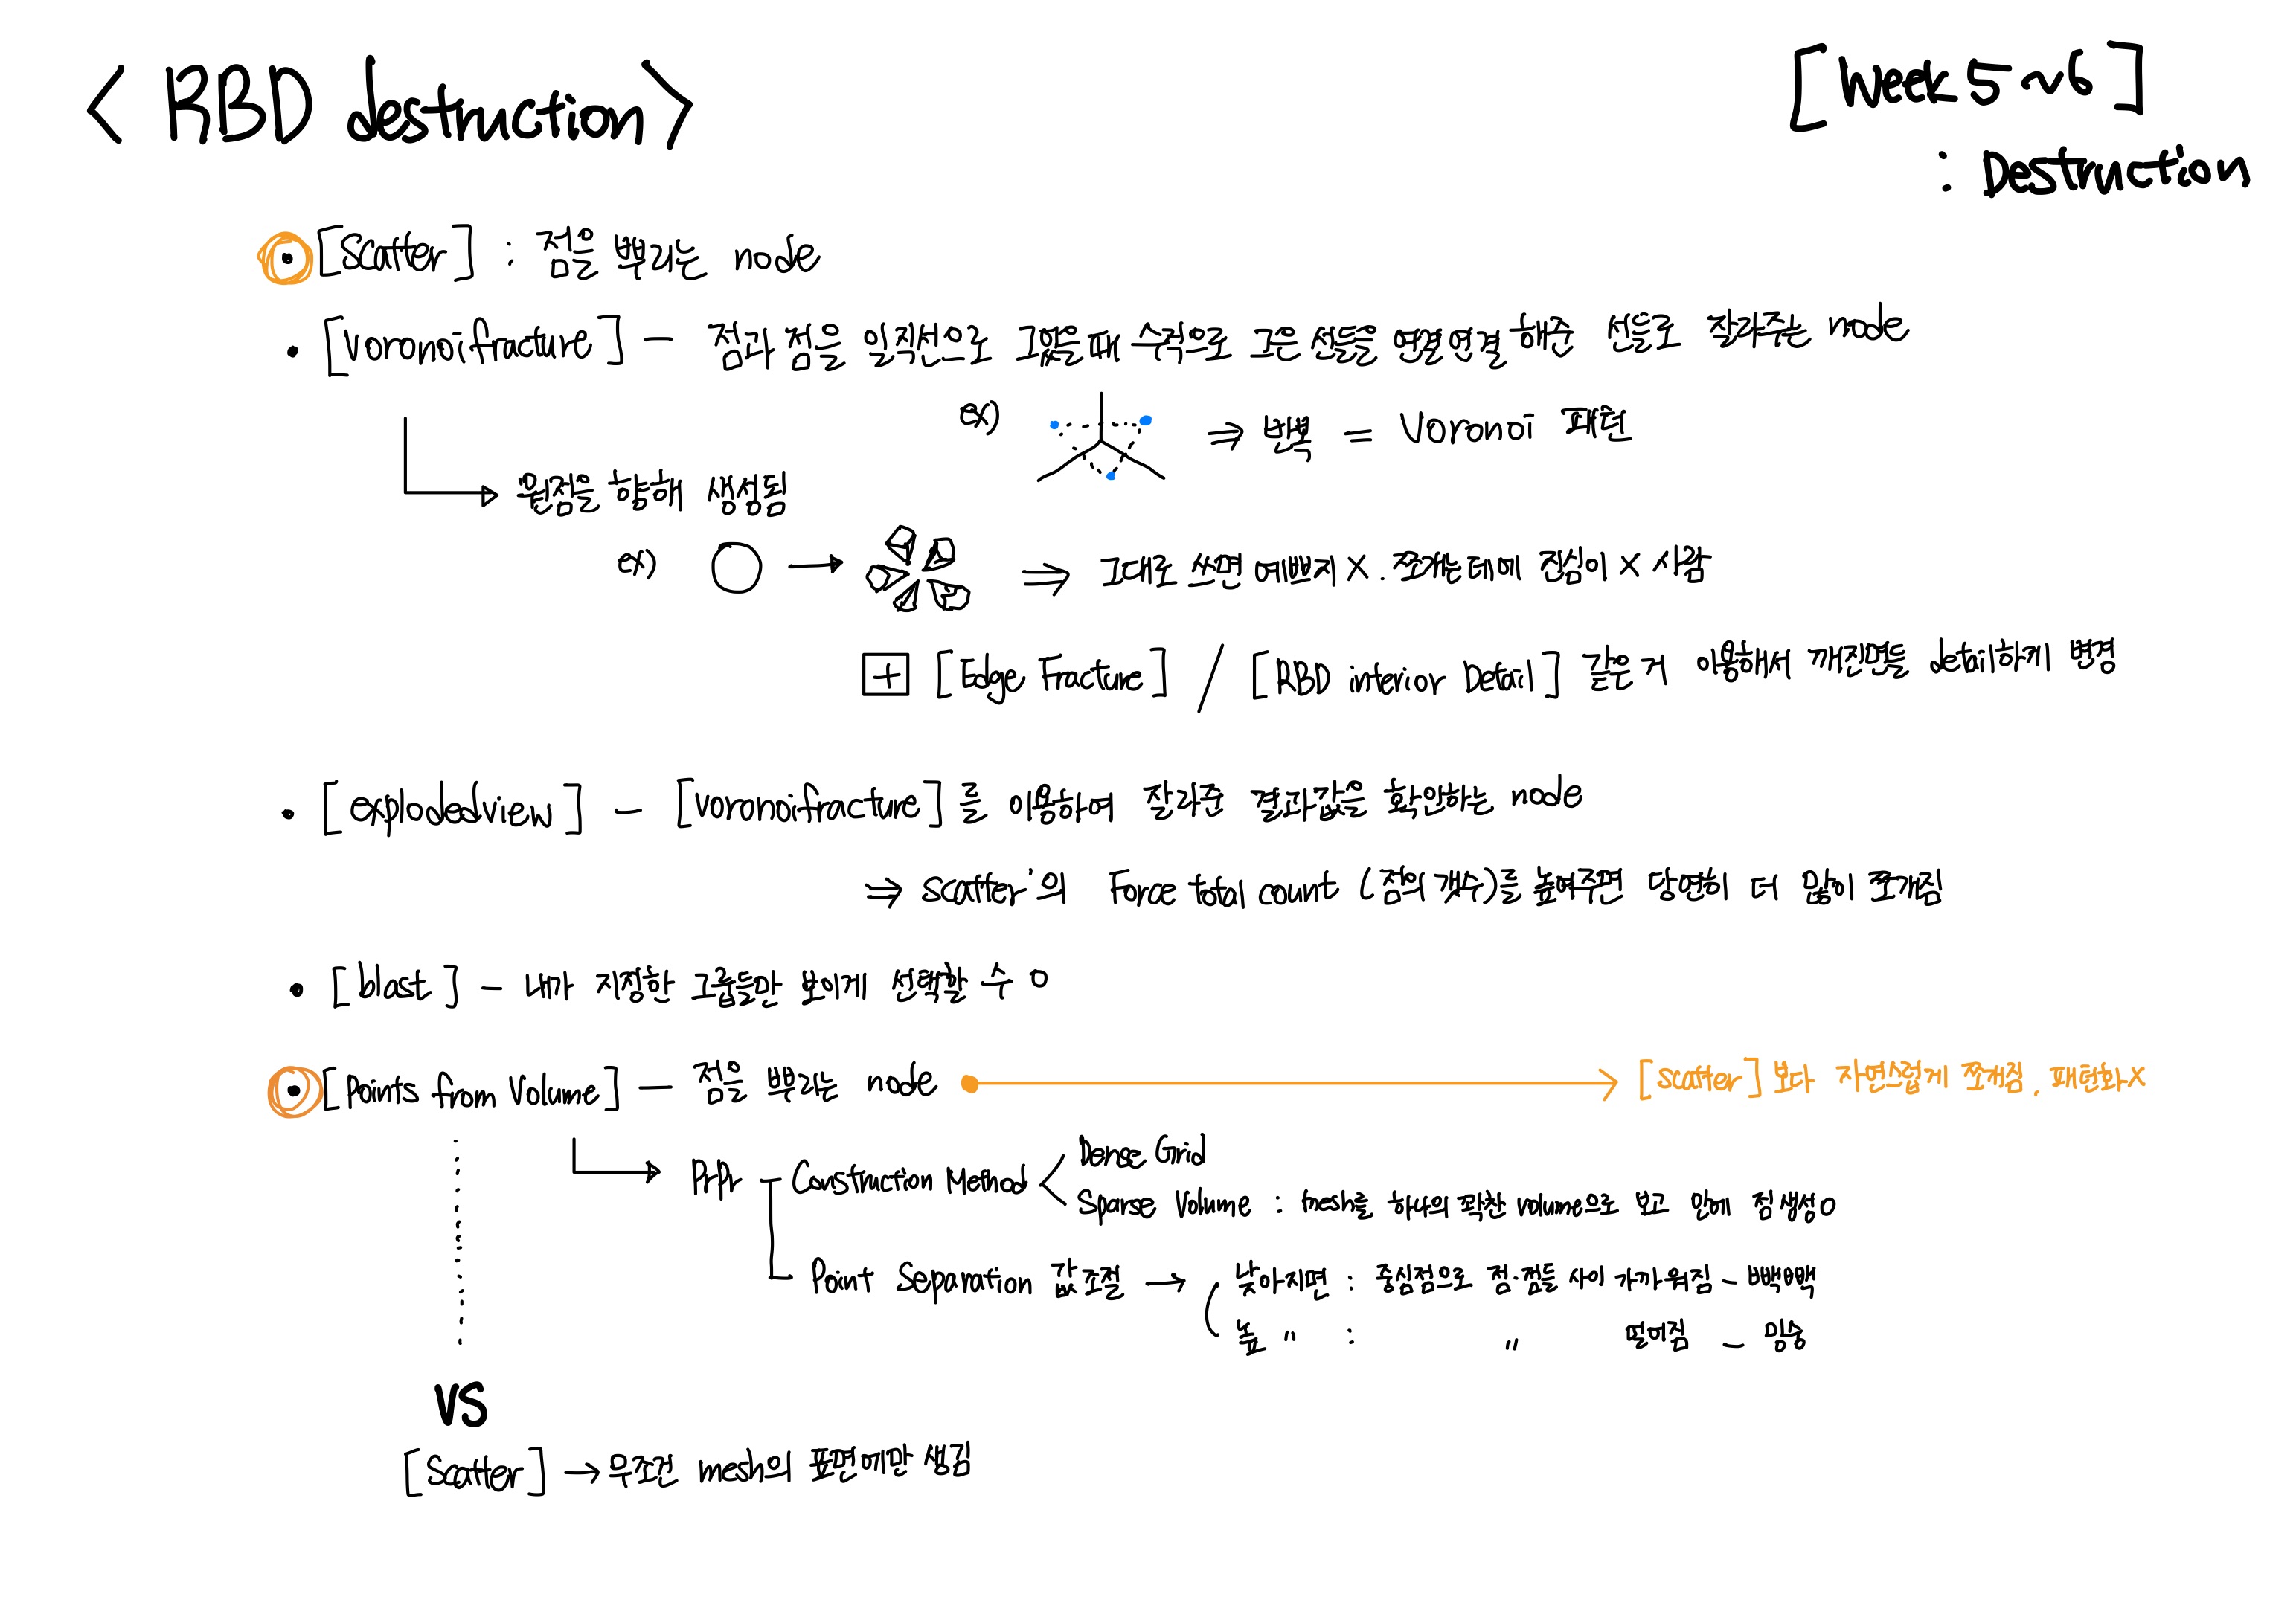 < RBD destruction >
[Week 5~6]
: Destruction
• [Scatter] : 점을 뿌리는 node
• [Voronoifracture] - 점과 점을 일직선으로 그었을때 수직으로 그은 선들을 연결연결 해준 선들로 잘라주는 node
ex) ⇒ 반복 = Voronoi 패턴
→ 원점을 향해 생성됨
ex) ○ → ⇒ 그대로 쓰면 예쁘지 X. 쪼개는데에 진심이 X 사람
+ [Edge Fracture] / [RBD interior Detail] 같은 거 이용해서 깨진면들 detail하게 변경
• [explodedview] - [voronoifracture]를 이용하여 잘라준 결과값을 확인하는 node
⇒ scatter'의 Force total count (점의 갯수)를 높여주면 당연히 더 많이 쪼개짐
• [blast] - 내가 지정한 그룹들만 보이게 선택할 수 O
• [Points from Volume] - 점을 뿌리는 node → [scatter] 보다 자연스럽게 쪼개짐. 패턴화X
→ PrPr - Construction Method < Dense Grid
Sparse Volume : mesh를 하나의 꽉찬 volume으로 보고 안에 점 생성O
Point Separation 값조절 → 낮아지면 : 중심점으로 점·점들 사이 가까워짐 - 빽빽
높 " : " 떨어짐 - 밍숭
VS
[Scatter] → 무조건 mesh의 표면에만 생김